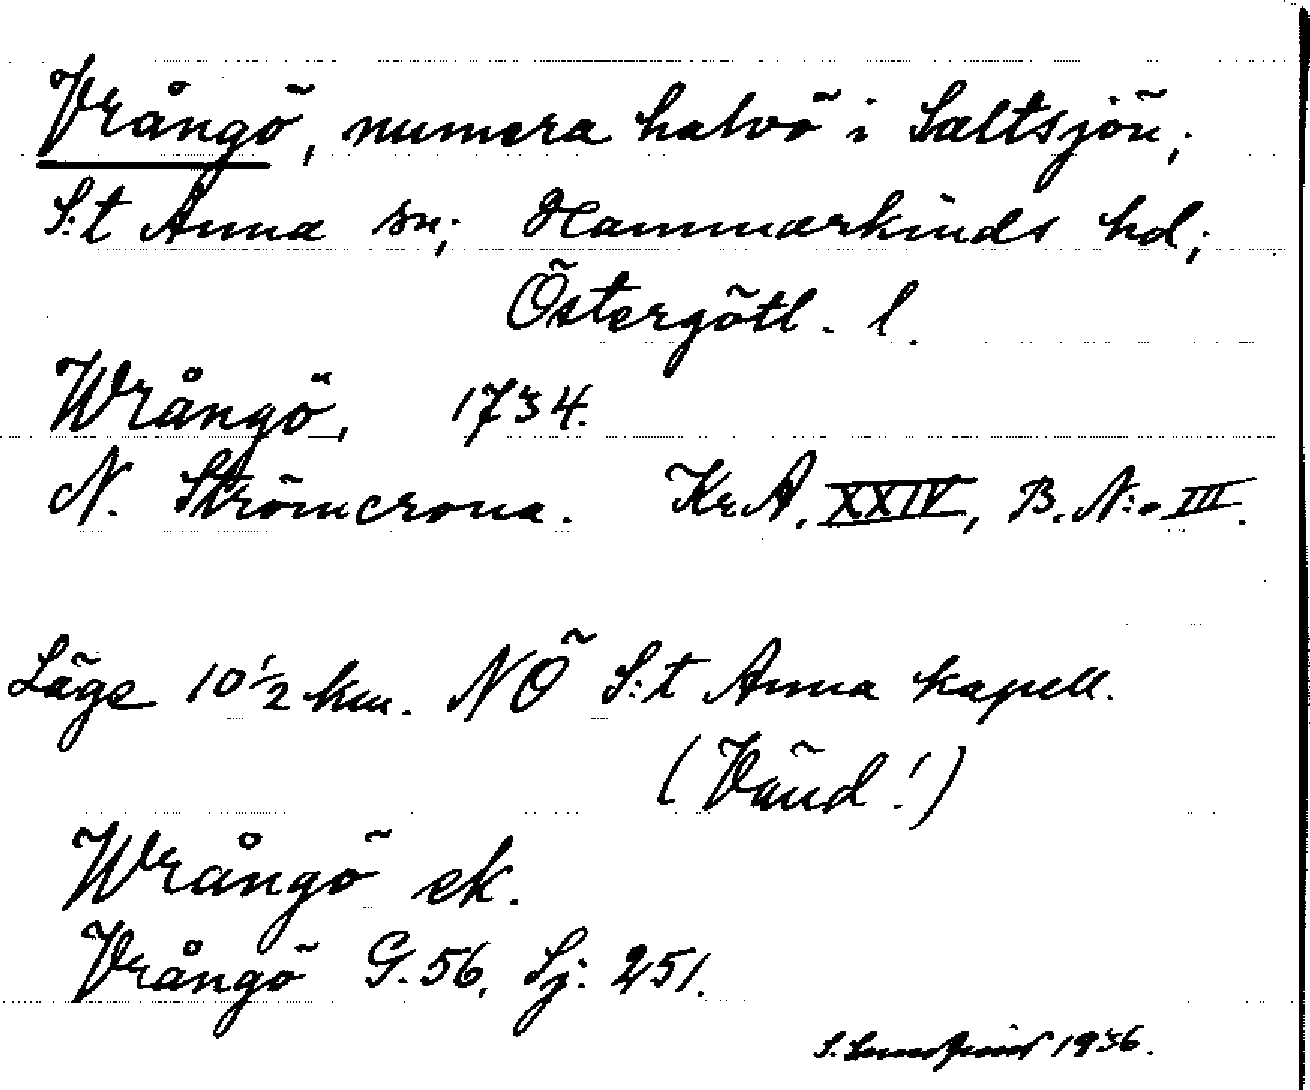 Vrångö, numera halvö i Saltsjön;
S:t Anna sn; Hammarkinds hd;
Östergötl. l.
Wrångö, 1734.
N. Strömcrona. Kr.A. XXIV, B. N:o III.
Läge 10 1/2 km. NÖ S:t Anna kapell.
(Vänd!)
Wrångö ek.
Vrångö G. 56, Sj: 251.
S. 1936.